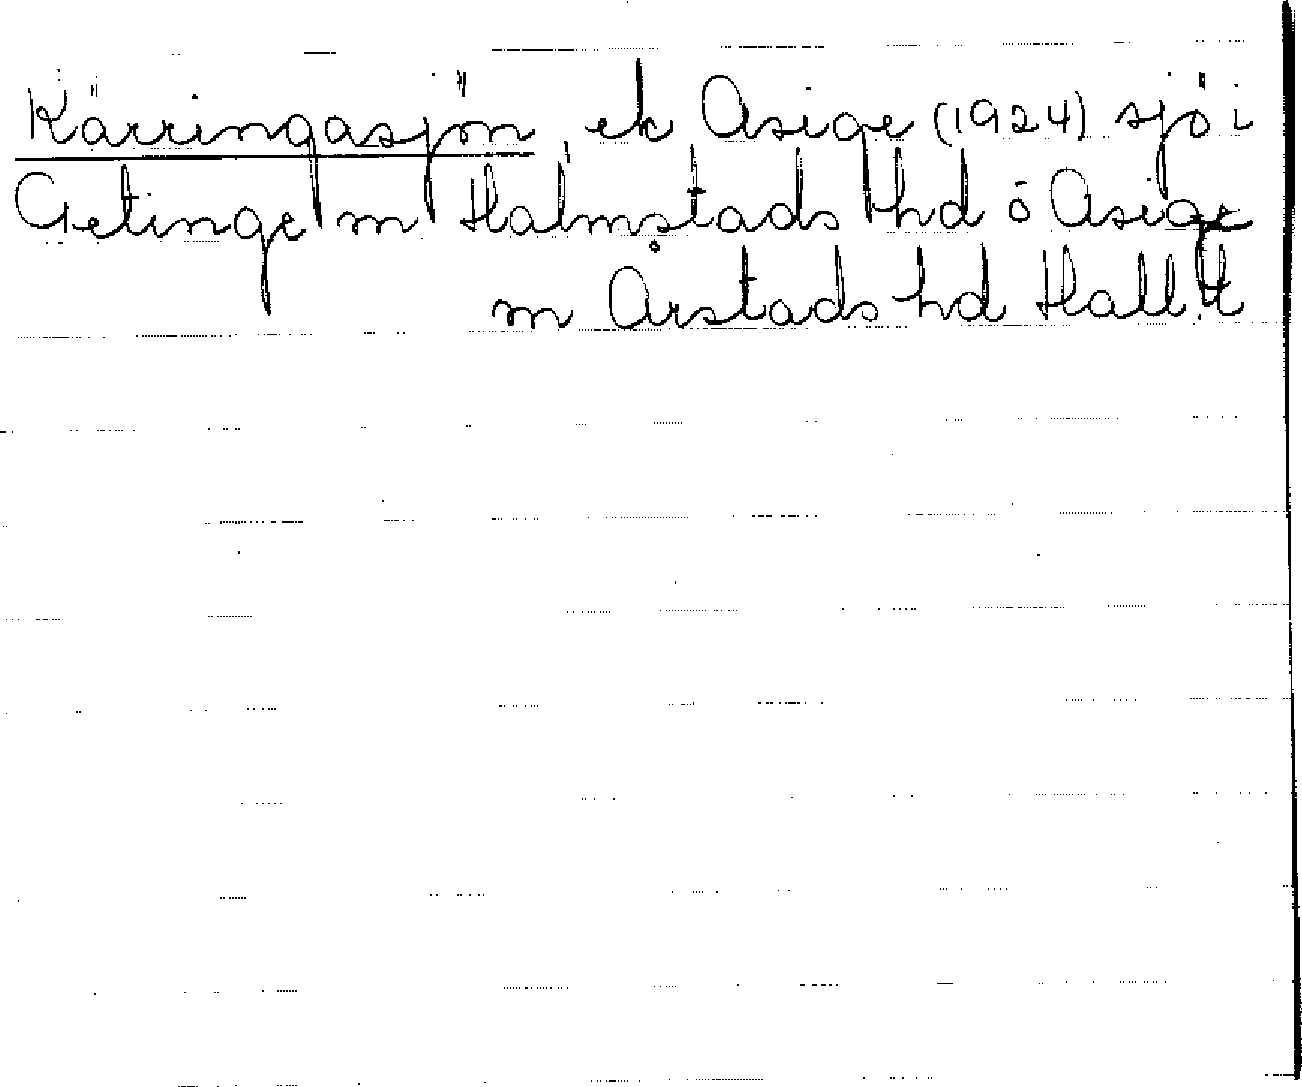 Käringasjön, ek Asige (1924) sjö i
Getinge m Halmstads hd ō Asige
m Årstads hd Hall. t